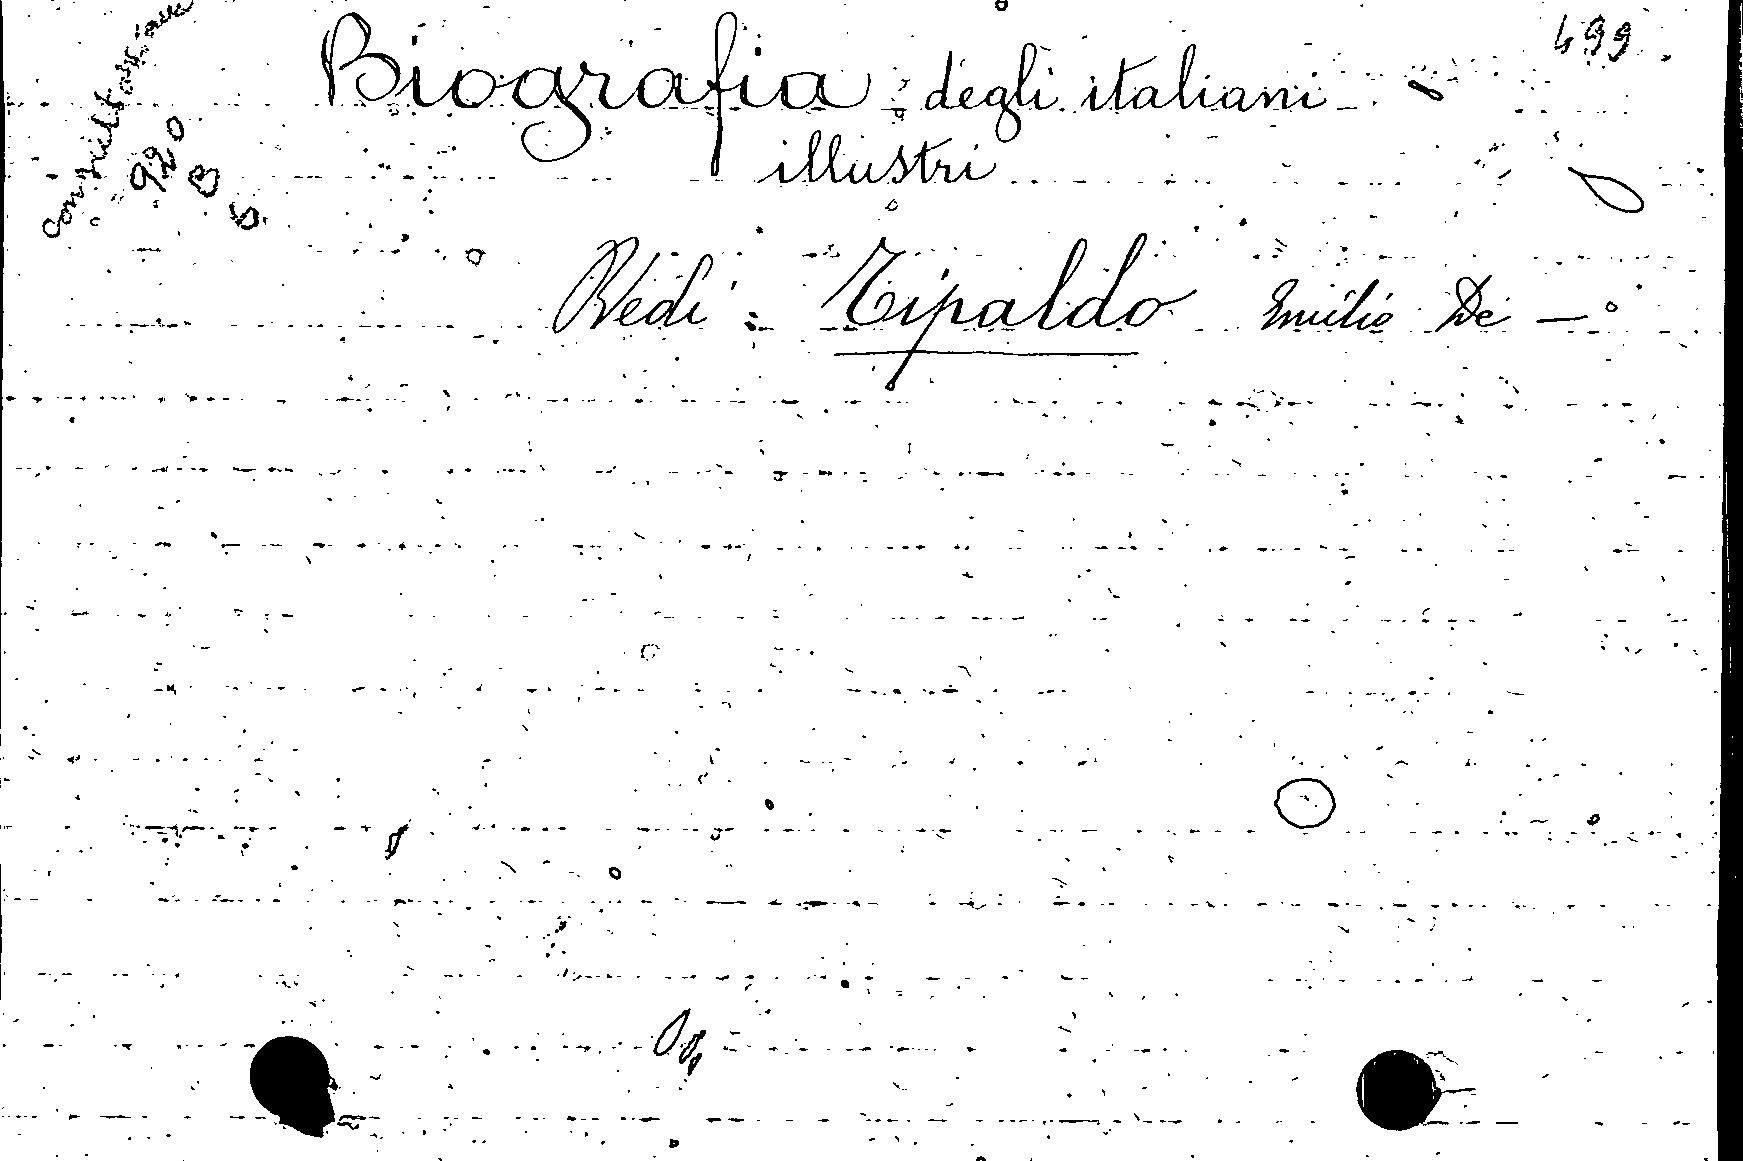 499
Consultazione
920
B
5
Biografia degli italiani
illustri
Vedi: Tipaldo Emilio De —